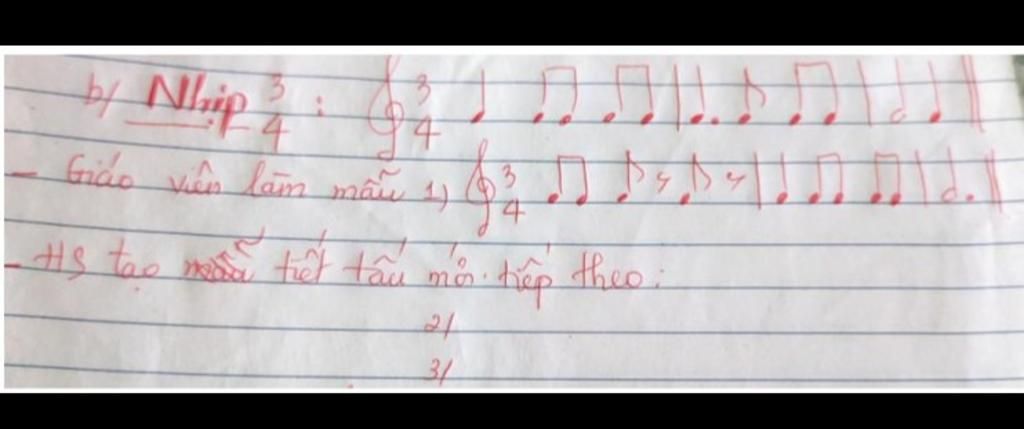 b/ Nhịp 3/4 : 3/4
- Giáo viên làm mẫu 1) 3/4
- HS tạo tiết tấu mới tiếp theo:
2/
3/